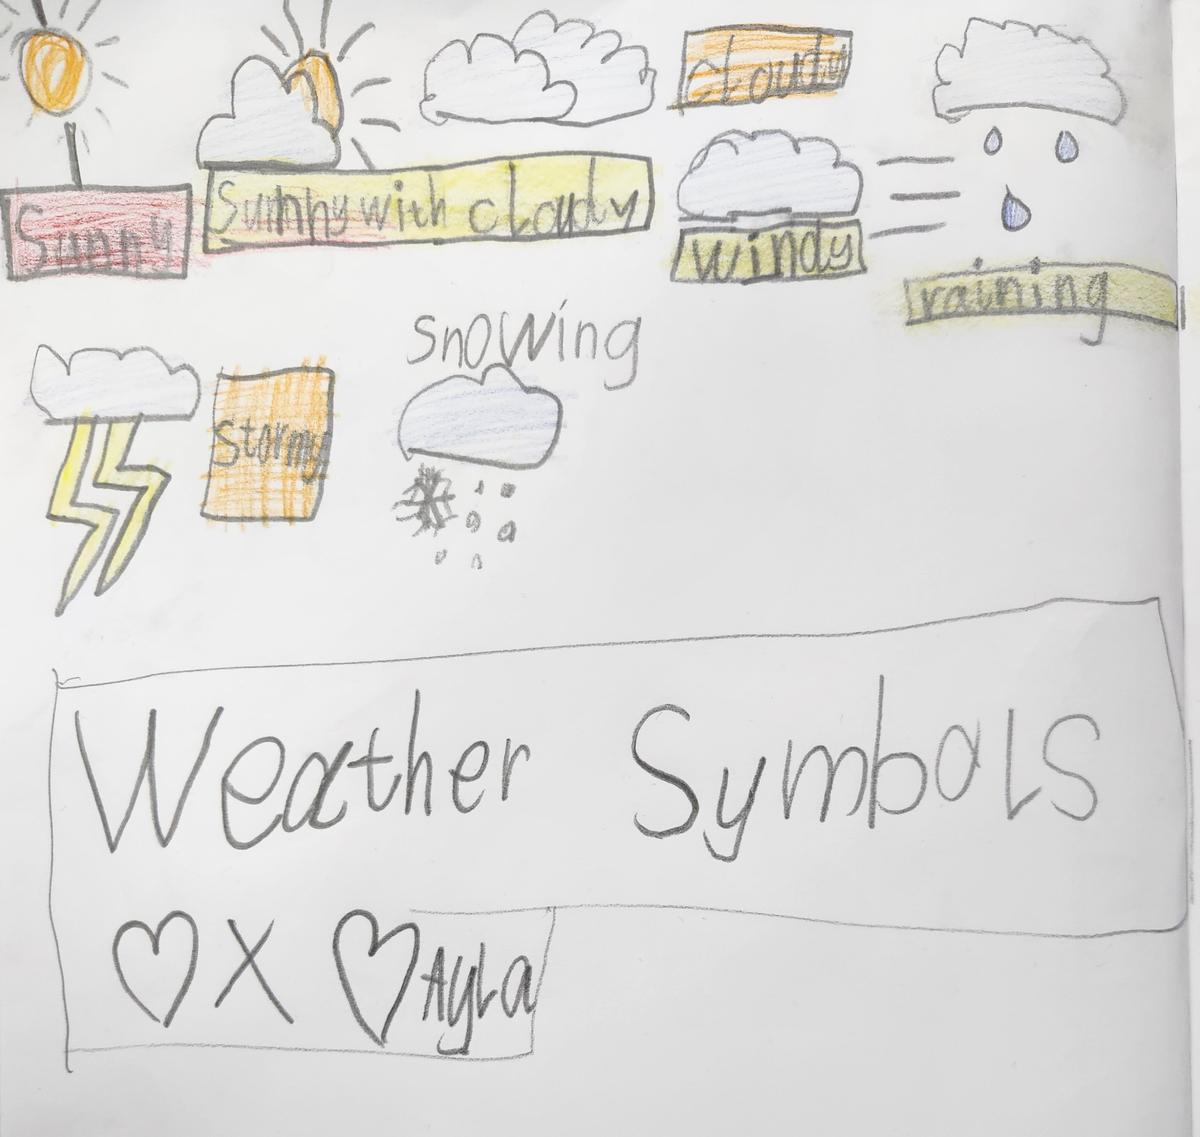 cloudy
Sunny
Sunny with cloudy
windy
raining
snowing
Stormy
Weather Symbols
X Ayla